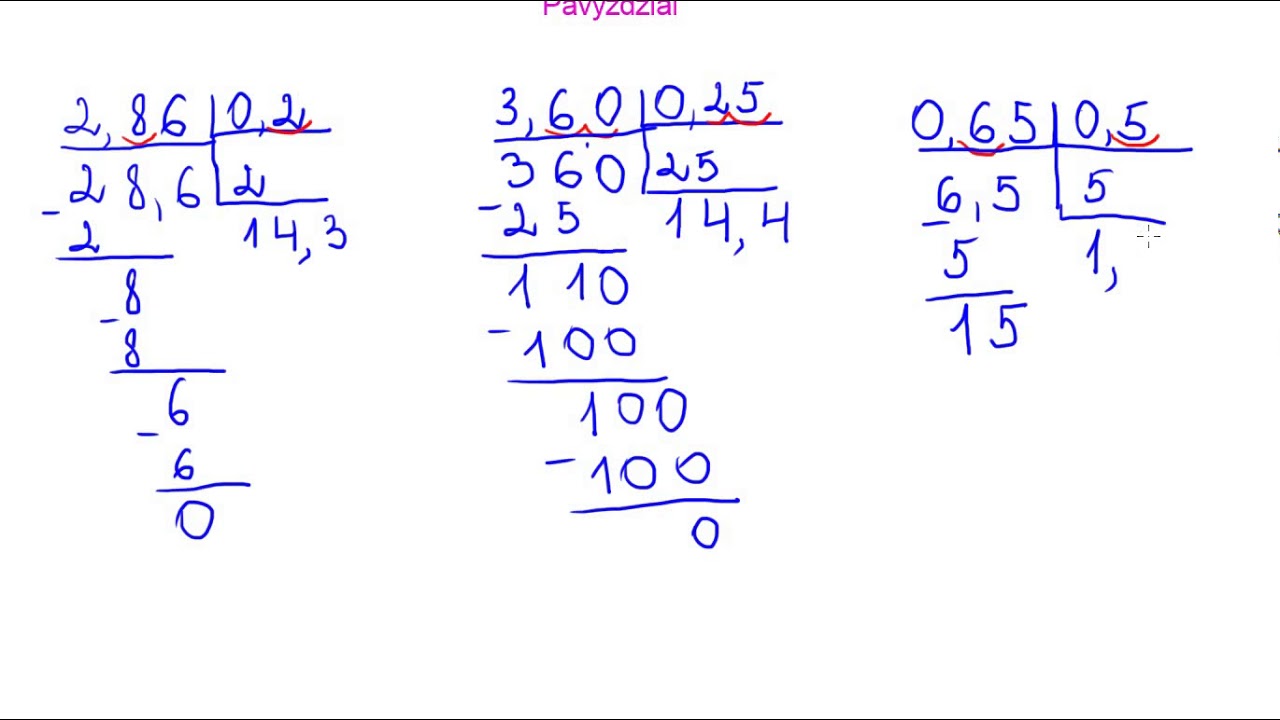 Pavyzdžiai
2,86 | 0,2
28,6 | 2
- 2 14,3
8
- 8
6
- 6
0
3,60 | 0,25
360 | 25
- 25 14,4
110
- 100
100
- 100
0
0,65 | 0,5
6,5 | 5
- 5 1,
15